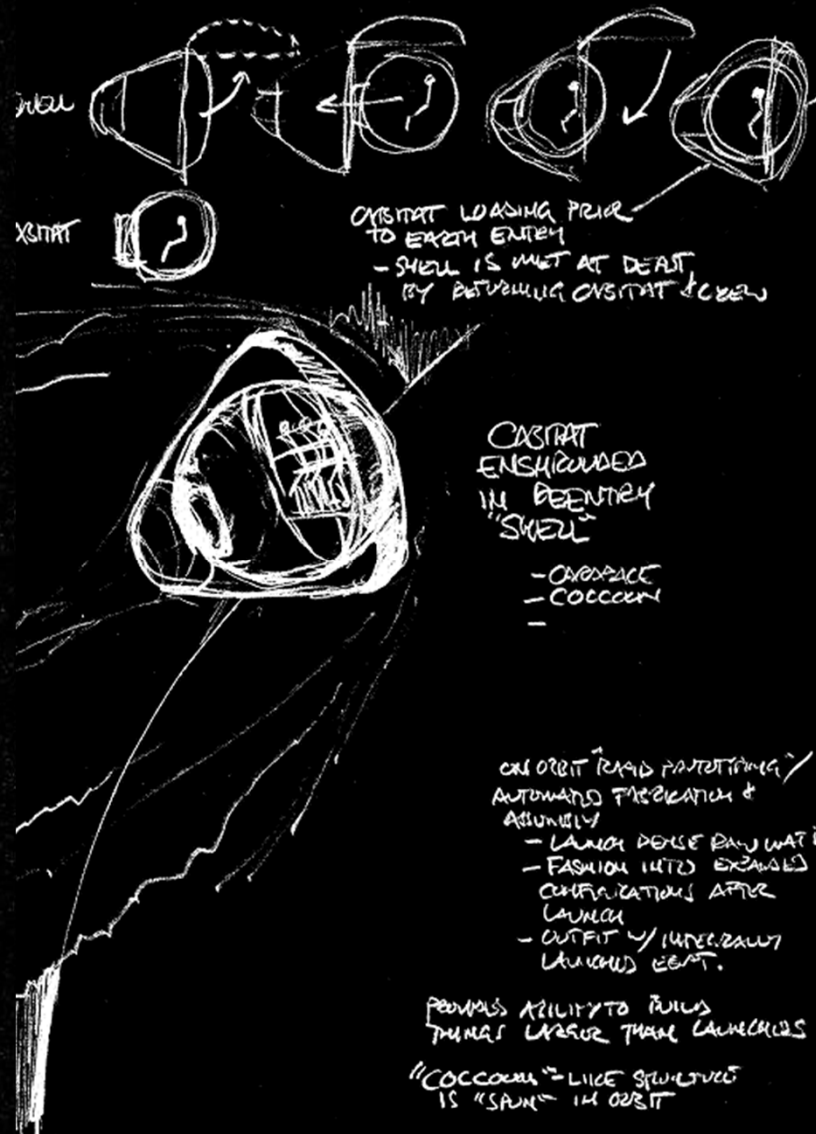 SHELL
ORBITAT
ORBITAT LOADING PRIOR
TO EARTH ENTRY
- SHELL IS MET AT DEPOT
BY RETURNING ORBITAT & CREW
ORBITAT
ENSHROUDED
IN REENTRY
"SHELL"
- CARAPACE
- COCCOON
-
ON ORBIT "RAPID PROTOTYPING"/
AUTOMATED FABRICATION &
ASSEMBLY
- LAUNCH DENSE RAW MAT
- FASHION INTO EXPANDED
CONFIGURATIONS AFTER
LAUNCH
- OUTFIT W/ INTEGRALLY
LAUNCHED EQPT.
PROVIDES ABILITY TO BUILD
THINGS LARGER THAN LAUNCHERS
"COCCOON"-LIKE STRUCTURE
IS "SPUN" IN ORBIT